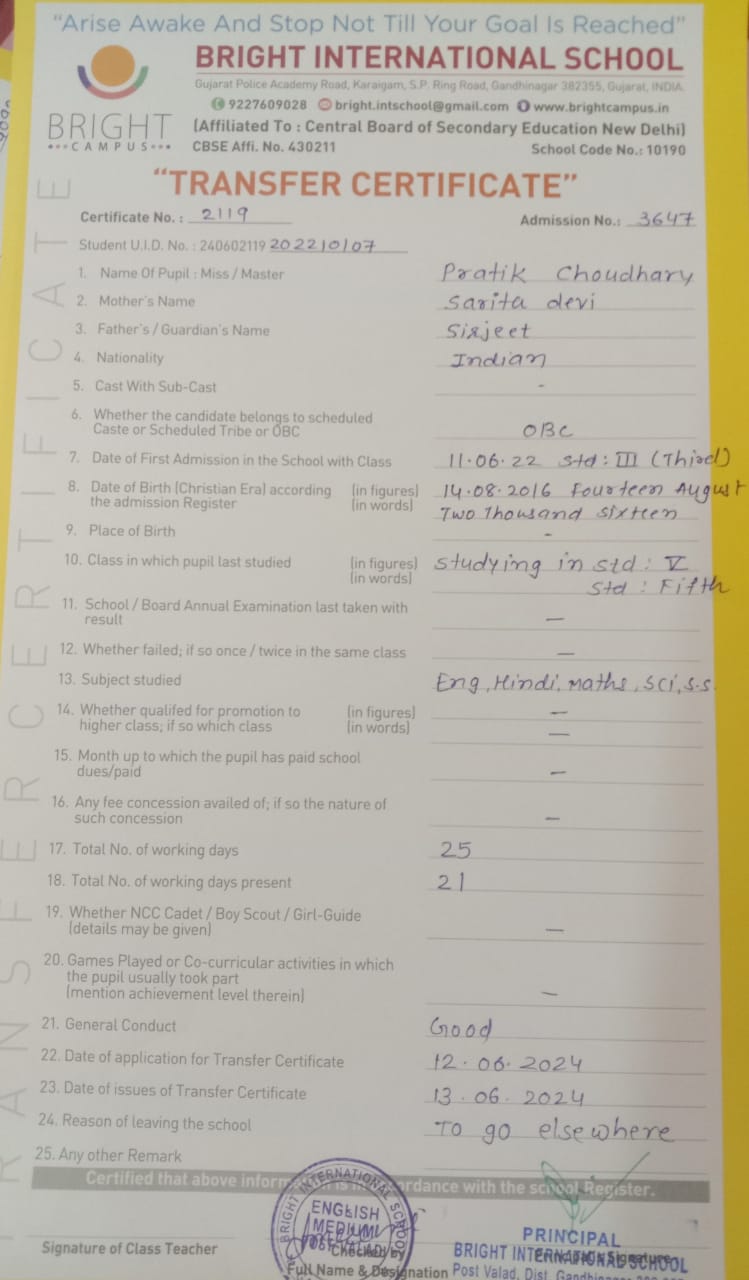 "Arise Awake And Stop Not Till Your Goal Is Reached"
BRIGHT INTERNATIONAL SCHOOL
Gujarat Police Academy Road, Karaigam, S.P. Ring Road, Gandhinagar 382355, Gujarat, INDIA.
9227609028 bright.intschool@gmail.com www.brightcampus.in
BRIGHT
CAMPUS
(Affiliated To : Central Board of Secondary Education New Delhi)
CBSE Affi. No. 430211 School Code No.: 10190
"TRANSFER CERTIFICATE"
Certificate No. : 2119 Admission No.: 3647
Student U.I.D. No. : 240602119 202210107
1. Name Of Pupil : Miss / Master Pratik Choudhary
2. Mother's Name Sarita devi
3. Father's / Guardian's Name Sirjeet
4. Nationality Indian
5. Cast With Sub-Cast -
6. Whether the candidate belongs to scheduled
Caste or Scheduled Tribe or OBC OBC
7. Date of First Admission in the School with Class 11.06.22 Std : III (Third)
8. Date of Birth (Christian Era) according (in figures) 14.08.2016 Fourteen August
the admission Register (in words) Two Thousand Sixteen
9. Place of Birth -
10. Class in which pupil last studied (in figures) Studying in Std : V
(in words) Std : Fifth
11. School / Board Annual Examination last taken with
result —
12. Whether failed; if so once / twice in the same class —
13. Subject studied Eng, Hindi, Maths, Sci, S.S.
14. Whether qualifed for promotion to (in figures) —
higher class; if so which class (in words) —
15. Month up to which the pupil has paid school
dues/paid —
16. Any fee concession availed of; if so the nature of
such concession —
17. Total No. of working days 25
18. Total No. of working days present 21
19. Whether NCC Cadet / Boy Scout / Girl-Guide
(details may be given) —
20. Games Played or Co-curricular activities in which
the pupil usually took part
(mention achievement level therein) —
21. General Conduct Good
22. Date of application for Transfer Certificate 12.06.2024
23. Date of issues of Transfer Certificate 13.06.2024
24. Reason of leaving the school To go elsewhere
25. Any other Remark
Certified that above information is in accordance with the school Register.
BRIGHT INTERNATIONAL SCHOOL
ENGLISH
MEDIUM
PRINCIPAL
Signature of Class Teacher Checked by Signature
BRIGHT INTERNATIONAL SCHOOL
Full Name & Designation Post Valad, Dist. Gandhinagar
TRANSFER CERTIFICATE